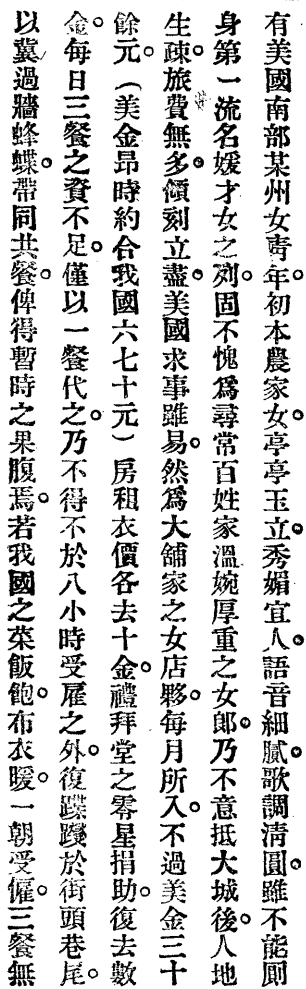 有美國南部某州女靑年初本農家女。亭亭玉立。秀媚宜人。語音細膩。歌調淸圓。雖不能厠
身第一流名媛才女之列。固不愧爲尋常百姓家溫婉厚重之女郞。乃不意抵大城後。人地
生疎。旅費無多。傾刻立盡。美國求事雖易。然爲大舖家之女店夥。每月所入。不過美金三十
餘元。（美金昂時約合我國六七十元）房租衣價各去十金。禮拜堂之零星捐助。復去數
金。每日三餐之資不足。僅以一餐代之。乃不得不於八小時受雇之外。復蹀躞於街頭巷尾。
以冀過牆蜂蝶。帶同共餐。俾得暫時之果腹焉。若我國之菜飯飽。布衣暖。一朝受僱。三餐無